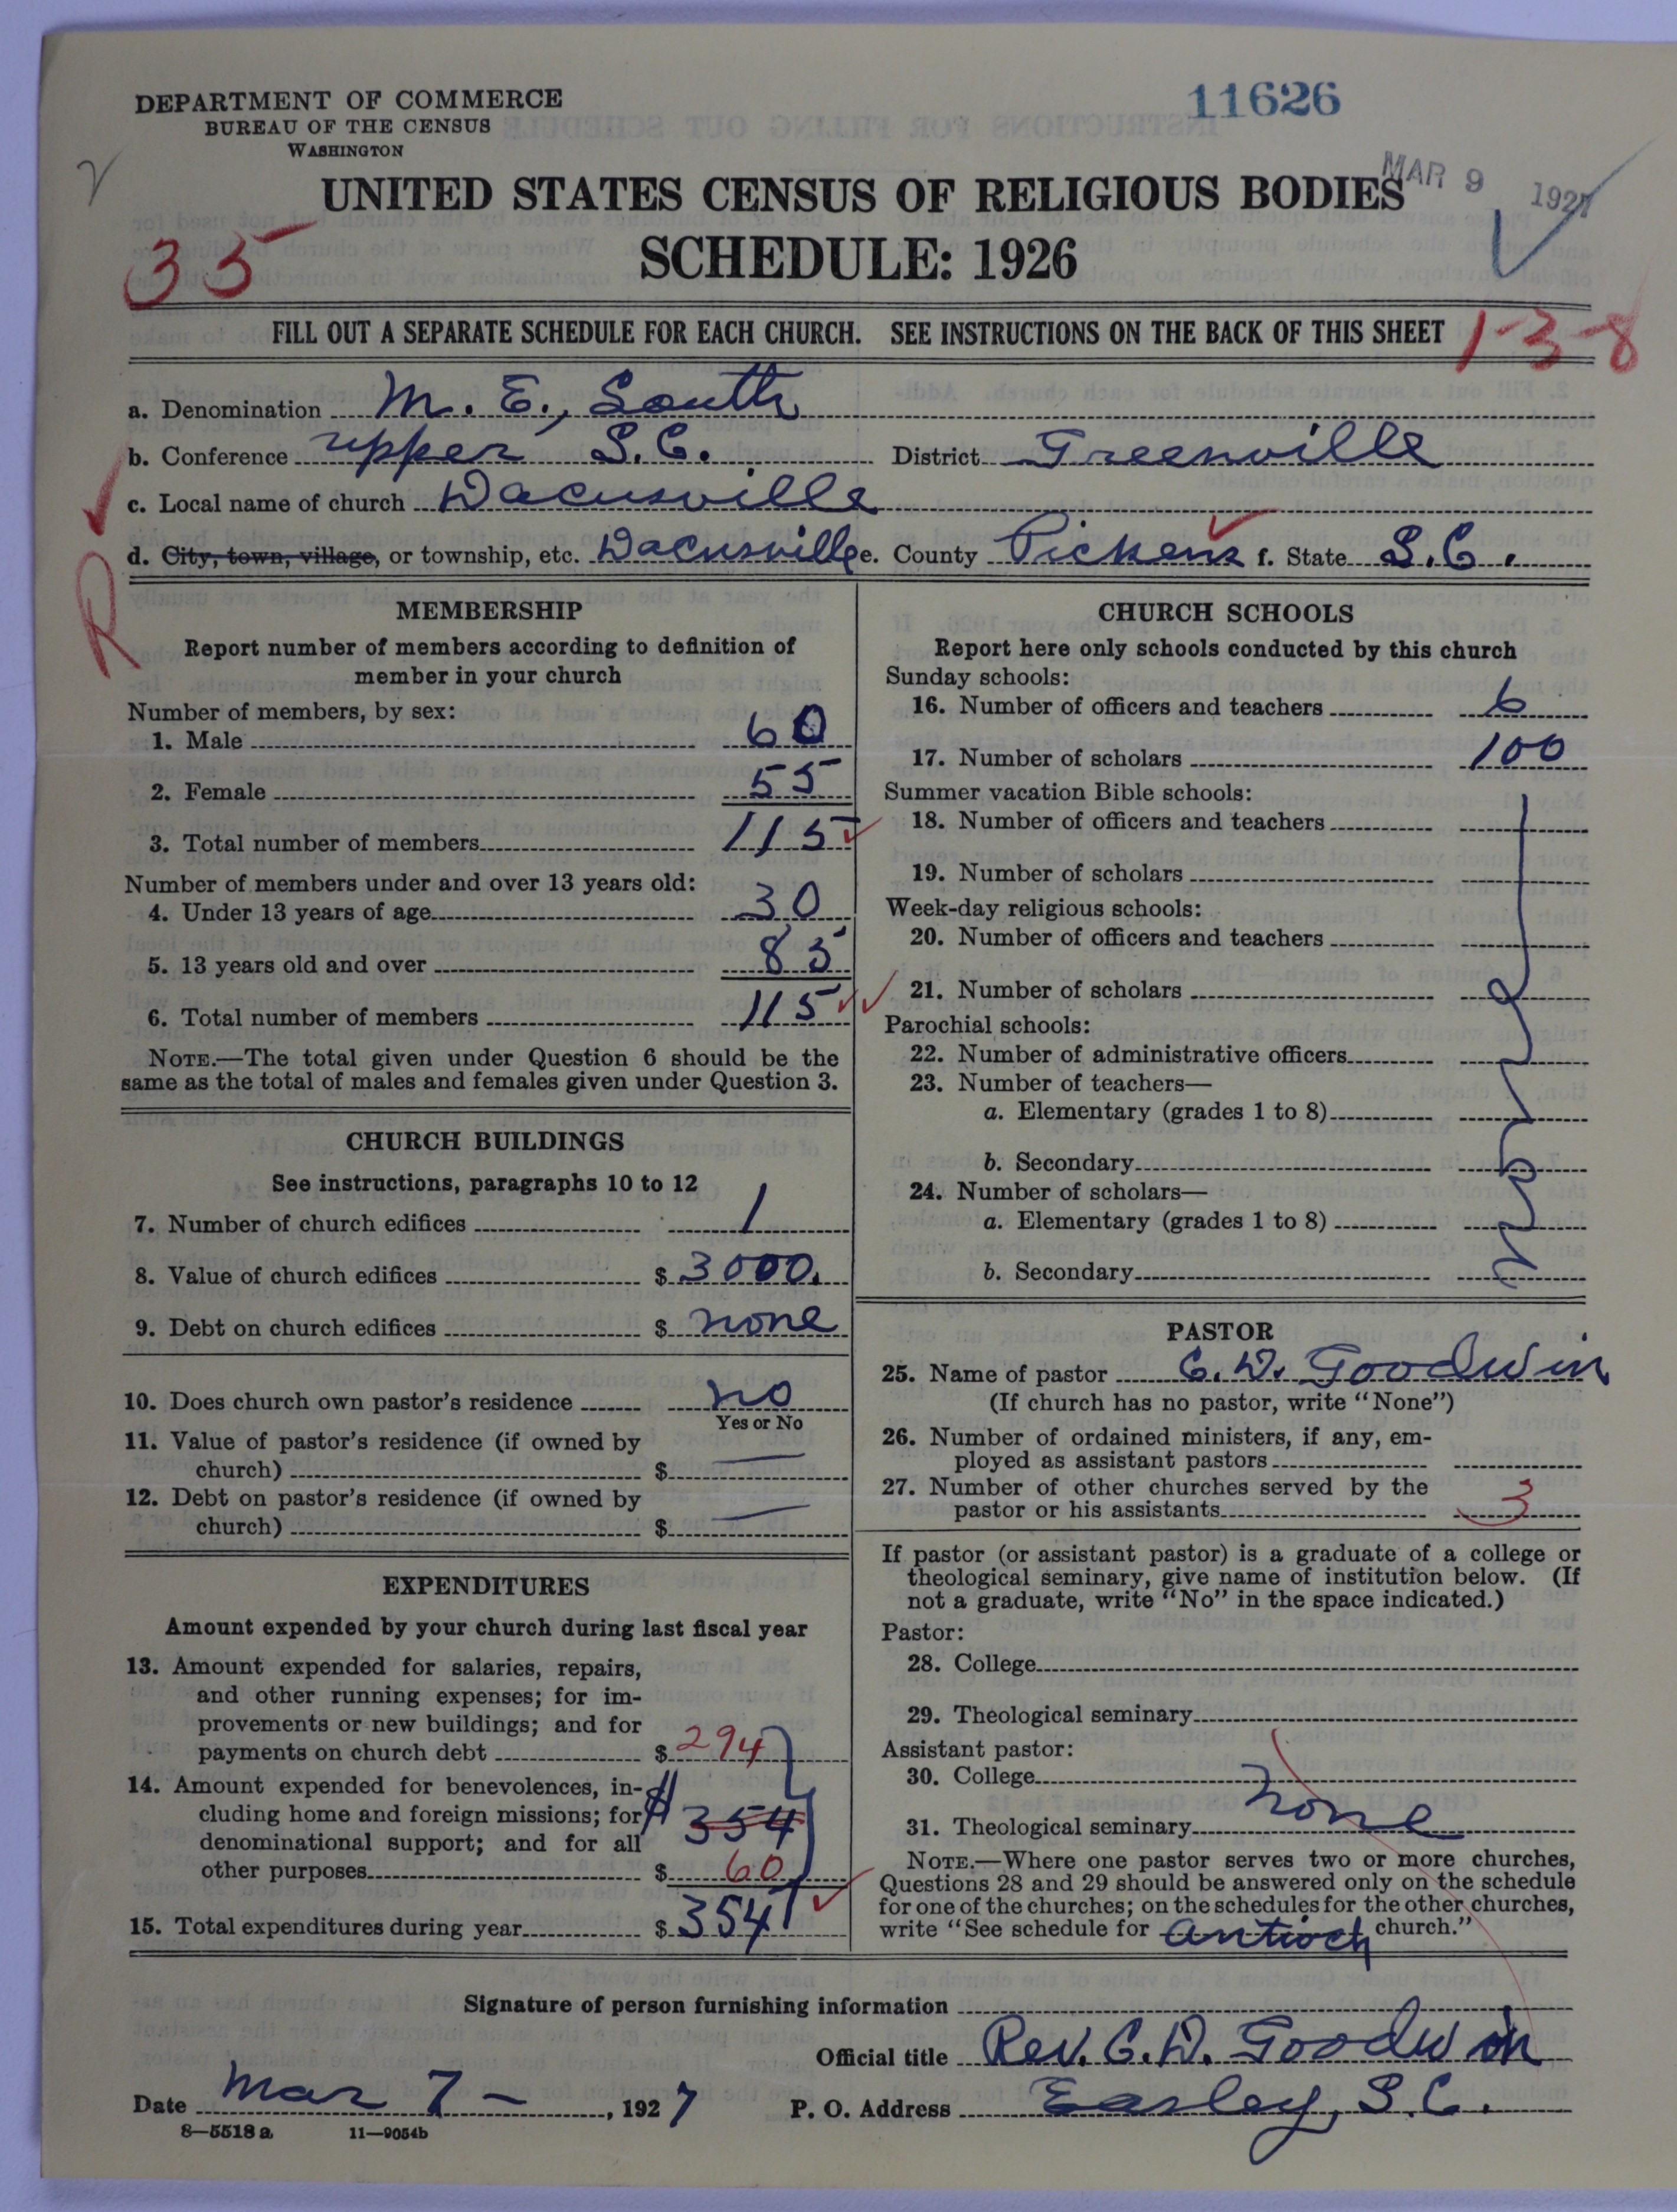 DEPARTMENT OF COMMERCE
BUREAU OF THE CENSUS
WASHINGTON
11626
MAR 9 1927
UNITED STATES CENSUS OF RELIGIOUS BODIES
SCHEDULE: 1926
35
FILL OUT A SEPARATE SCHEDULE FOR EACH CHURCH. SEE INSTRUCTIONS ON THE BACK OF THIS SHEET
1-3-8
a. Denomination M. E., South
b. Conference upper S.C. District Greenville
c. Local name of church Dacusville
d. City, town, village, or township, etc. Dacusville e. County Pickens f. State S.C.
R
MEMBERSHIP
Report number of members according to definition of
member in your church
Number of members, by sex:
1. Male 60
2. Female 55
3. Total number of members 115
Number of members under and over 13 years old:
4. Under 13 years of age 30
5. 13 years old and over 85
6. Total number of members 115
NOTE.—The total given under Question 6 should be the
same as the total of males and females given under Question 3.
CHURCH BUILDINGS
See instructions, paragraphs 10 to 12
7. Number of church edifices 1
8. Value of church edifices $ 3000.
9. Debt on church edifices $ none
10. Does church own pastor's residence no
Yes or No
11. Value of pastor's residence (if owned by
church) $ —
12. Debt on pastor's residence (if owned by
church) $ —
EXPENDITURES
Amount expended by your church during last fiscal year
13. Amount expended for salaries, repairs,
and other running expenses; for im-
provements or new buildings; and for
payments on church debt $ 294
14. Amount expended for benevolences, in-
cluding home and foreign missions; for $ 354
denominational support; and for all
other purposes $ 60
15. Total expenditures during year $ 354
CHURCH SCHOOLS
Report here only schools conducted by this church
Sunday schools:
16. Number of officers and teachers 6
17. Number of scholars 100
Summer vacation Bible schools:
18. Number of officers and teachers
19. Number of scholars
Week-day religious schools:
20. Number of officers and teachers
21. Number of scholars
Parochial schools:
22. Number of administrative officers
23. Number of teachers—
a. Elementary (grades 1 to 8)
b. Secondary
24. Number of scholars—
a. Elementary (grades 1 to 8)
b. Secondary
none
PASTOR
25. Name of pastor C. D. Goodwin
(If church has no pastor, write "None")
26. Number of ordained ministers, if any, em-
ployed as assistant pastors
27. Number of other churches served by the
pastor or his assistants 3
If pastor (or assistant pastor) is a graduate of a college or
theological seminary, give name of institution below. (If
not a graduate, write "No" in the space indicated.)
Pastor:
28. College
29. Theological seminary
Assistant pastor:
30. College
31. Theological seminary none
NOTE.—Where one pastor serves two or more churches,
Questions 28 and 29 should be answered only on the schedule
for one of the churches; on the schedules for the other churches,
write "See schedule for Antioch church."
Signature of person furnishing information
Official title Rev. C. D. Goodwin
Date Mar 7 — , 1927 P. O. Address Easley, S.C.
8—5518 a 11—9054b